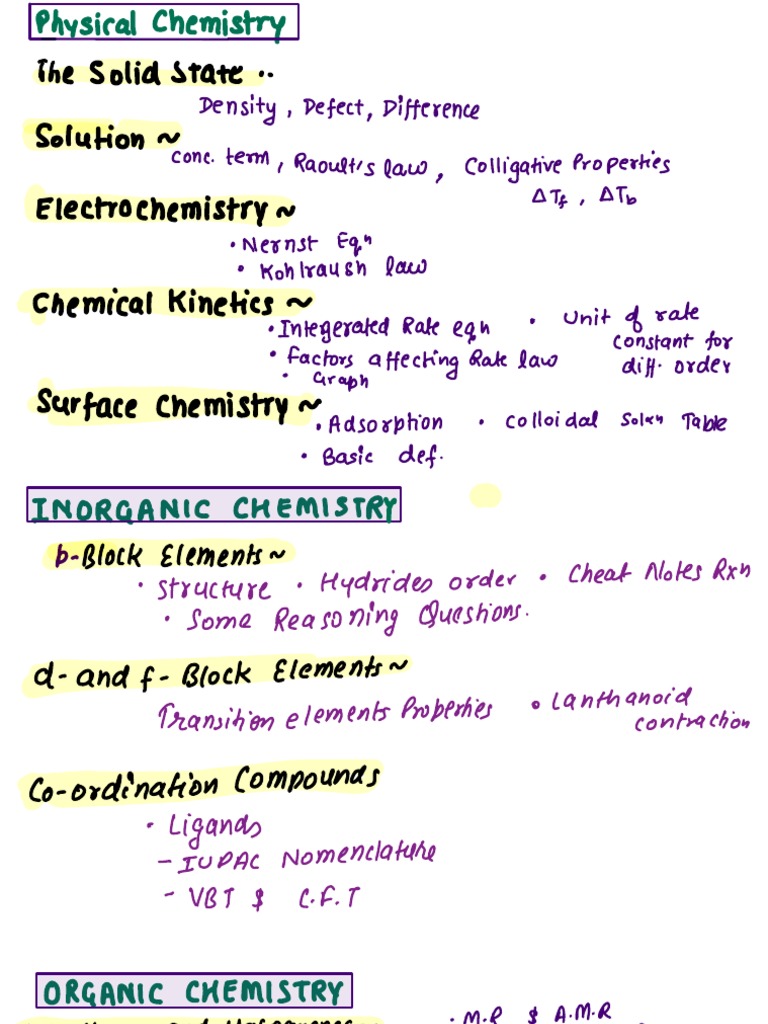 Physical Chemistry
The Solid State ..
Density, Defect, Difference
Solution ~
Conc. term, Raoult's law, Colligative Properties
ΔTf, ΔTb
Electrochemistry ~
• Nernst Eqn
• Kohlraush law
Chemical Kinetics ~
• Integerated Rate eqn • Unit of rate
constant for
• Factors affecting Rate law diff. order
• Graph
Surface Chemistry ~
• Adsorption • Colloidal Table
• Basic def.
INORGANIC CHEMISTRY
p-Block Elements ~
• Structure • Hydrides order • Cheat Notes Rxn
• Some Reasoning Questions.
d- and f- Block Elements ~
Transition elements Properties • Lanthanoid
contraction
Co-ordination Compounds
• Ligands
- IUPAC Nomenclature
- VBT & C.F.T
ORGANIC CHEMISTRY
• M.R & A.M.R